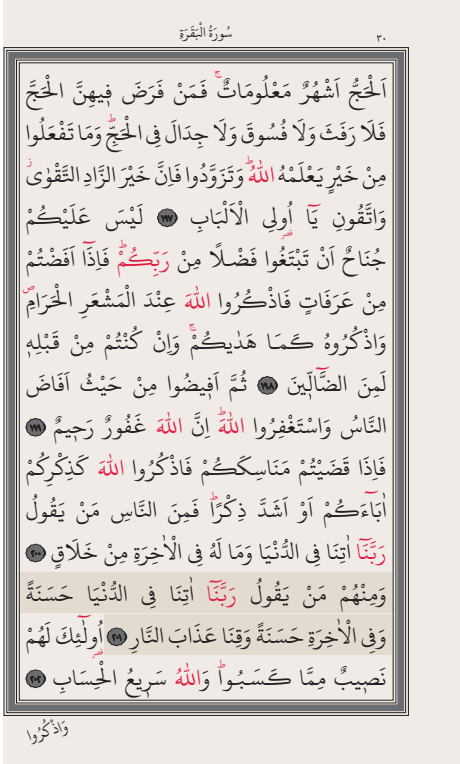 ٣٠ سُورَةُ الْبَقَرَةِ
اَلْحَجُّ اَشْهُرٌ مَعْلُومَاتٌۚ فَمَنْ فَرَضَ ف۪يهِنَّ الْحَجَّ
فَلَا رَفَثَ وَلَا فُسُوقَ وَلَا جِدَالَ فِي الْحَجِّۜ وَمَا تَفْعَلُوا
مِنْ خَيْرٍ يَعْلَمْهُ اللّٰهُۜ وَتَزَوَّدُوا فَاِنَّ خَيْرَ الزَّادِ التَّقْوٰىۘ
وَاتَّقُونِ يَٓا اُو۬لِي الْاَلْبَابِ ﴿١٩٧﴾ لَيْسَ عَلَيْكُمْ
جُنَاحٌ اَنْ تَبْتَغُوا فَضْلًا مِنْ رَبِّكُمْۜ فَاِذَٓا اَفَضْتُمْ
مِنْ عَرَفَاتٍ فَاذْكُرُوا اللّٰهَ عِنْدَ الْمَشْعَرِ الْحَرَامِۖ
وَاذْكُرُوهُ كَمَا هَدٰيكُمْۚ وَاِنْ كُنْتُمْ مِنْ قَبْلِه۪
لَمِنَ الضَّٓالّ۪ينَ ﴿١٩٨﴾ ثُمَّ اَف۪يضُوا مِنْ حَيْثُ اَفَاضَ
النَّاسُ وَاسْتَغْفِرُوا اللّٰهَۜ اِنَّ اللّٰهَ غَفُورٌ رَح۪يمٌ ﴿١٩٩﴾
فَاِذَا قَضَيْتُمْ مَنَاسِكَكُمْ فَاذْكُرُوا اللّٰهَ كَذِكْرِكُمْ
اٰبَٓاءَكُمْ اَوْ اَشَدَّ ذِكْرًاۜ فَمِنَ النَّاسِ مَنْ يَقُولُ
رَبَّنَٓا اٰتِنَا فِي الدُّنْيَا وَمَا لَهُ فِي الْاٰخِرَةِ مِنْ خَلَاقٍ ﴿٢٠٠﴾
وَمِنْهُمْ مَنْ يَقُولُ رَبَّنَٓا اٰتِنَا فِي الدُّنْيَا حَسَنَةً
وَفِي الْاٰخِرَةِ حَسَنَةً وَقِنَا عَذَابَ النَّارِ ﴿٢٠١﴾ اُو۬لٰٓئِكَ لَهُمْ
نَص۪يبٌ مِمَّا كَسَبُواۜ وَاللّٰهُ سَر۪يعُ الْحِسَابِ ﴿٢٠٢﴾
وَاذْكُرُوا